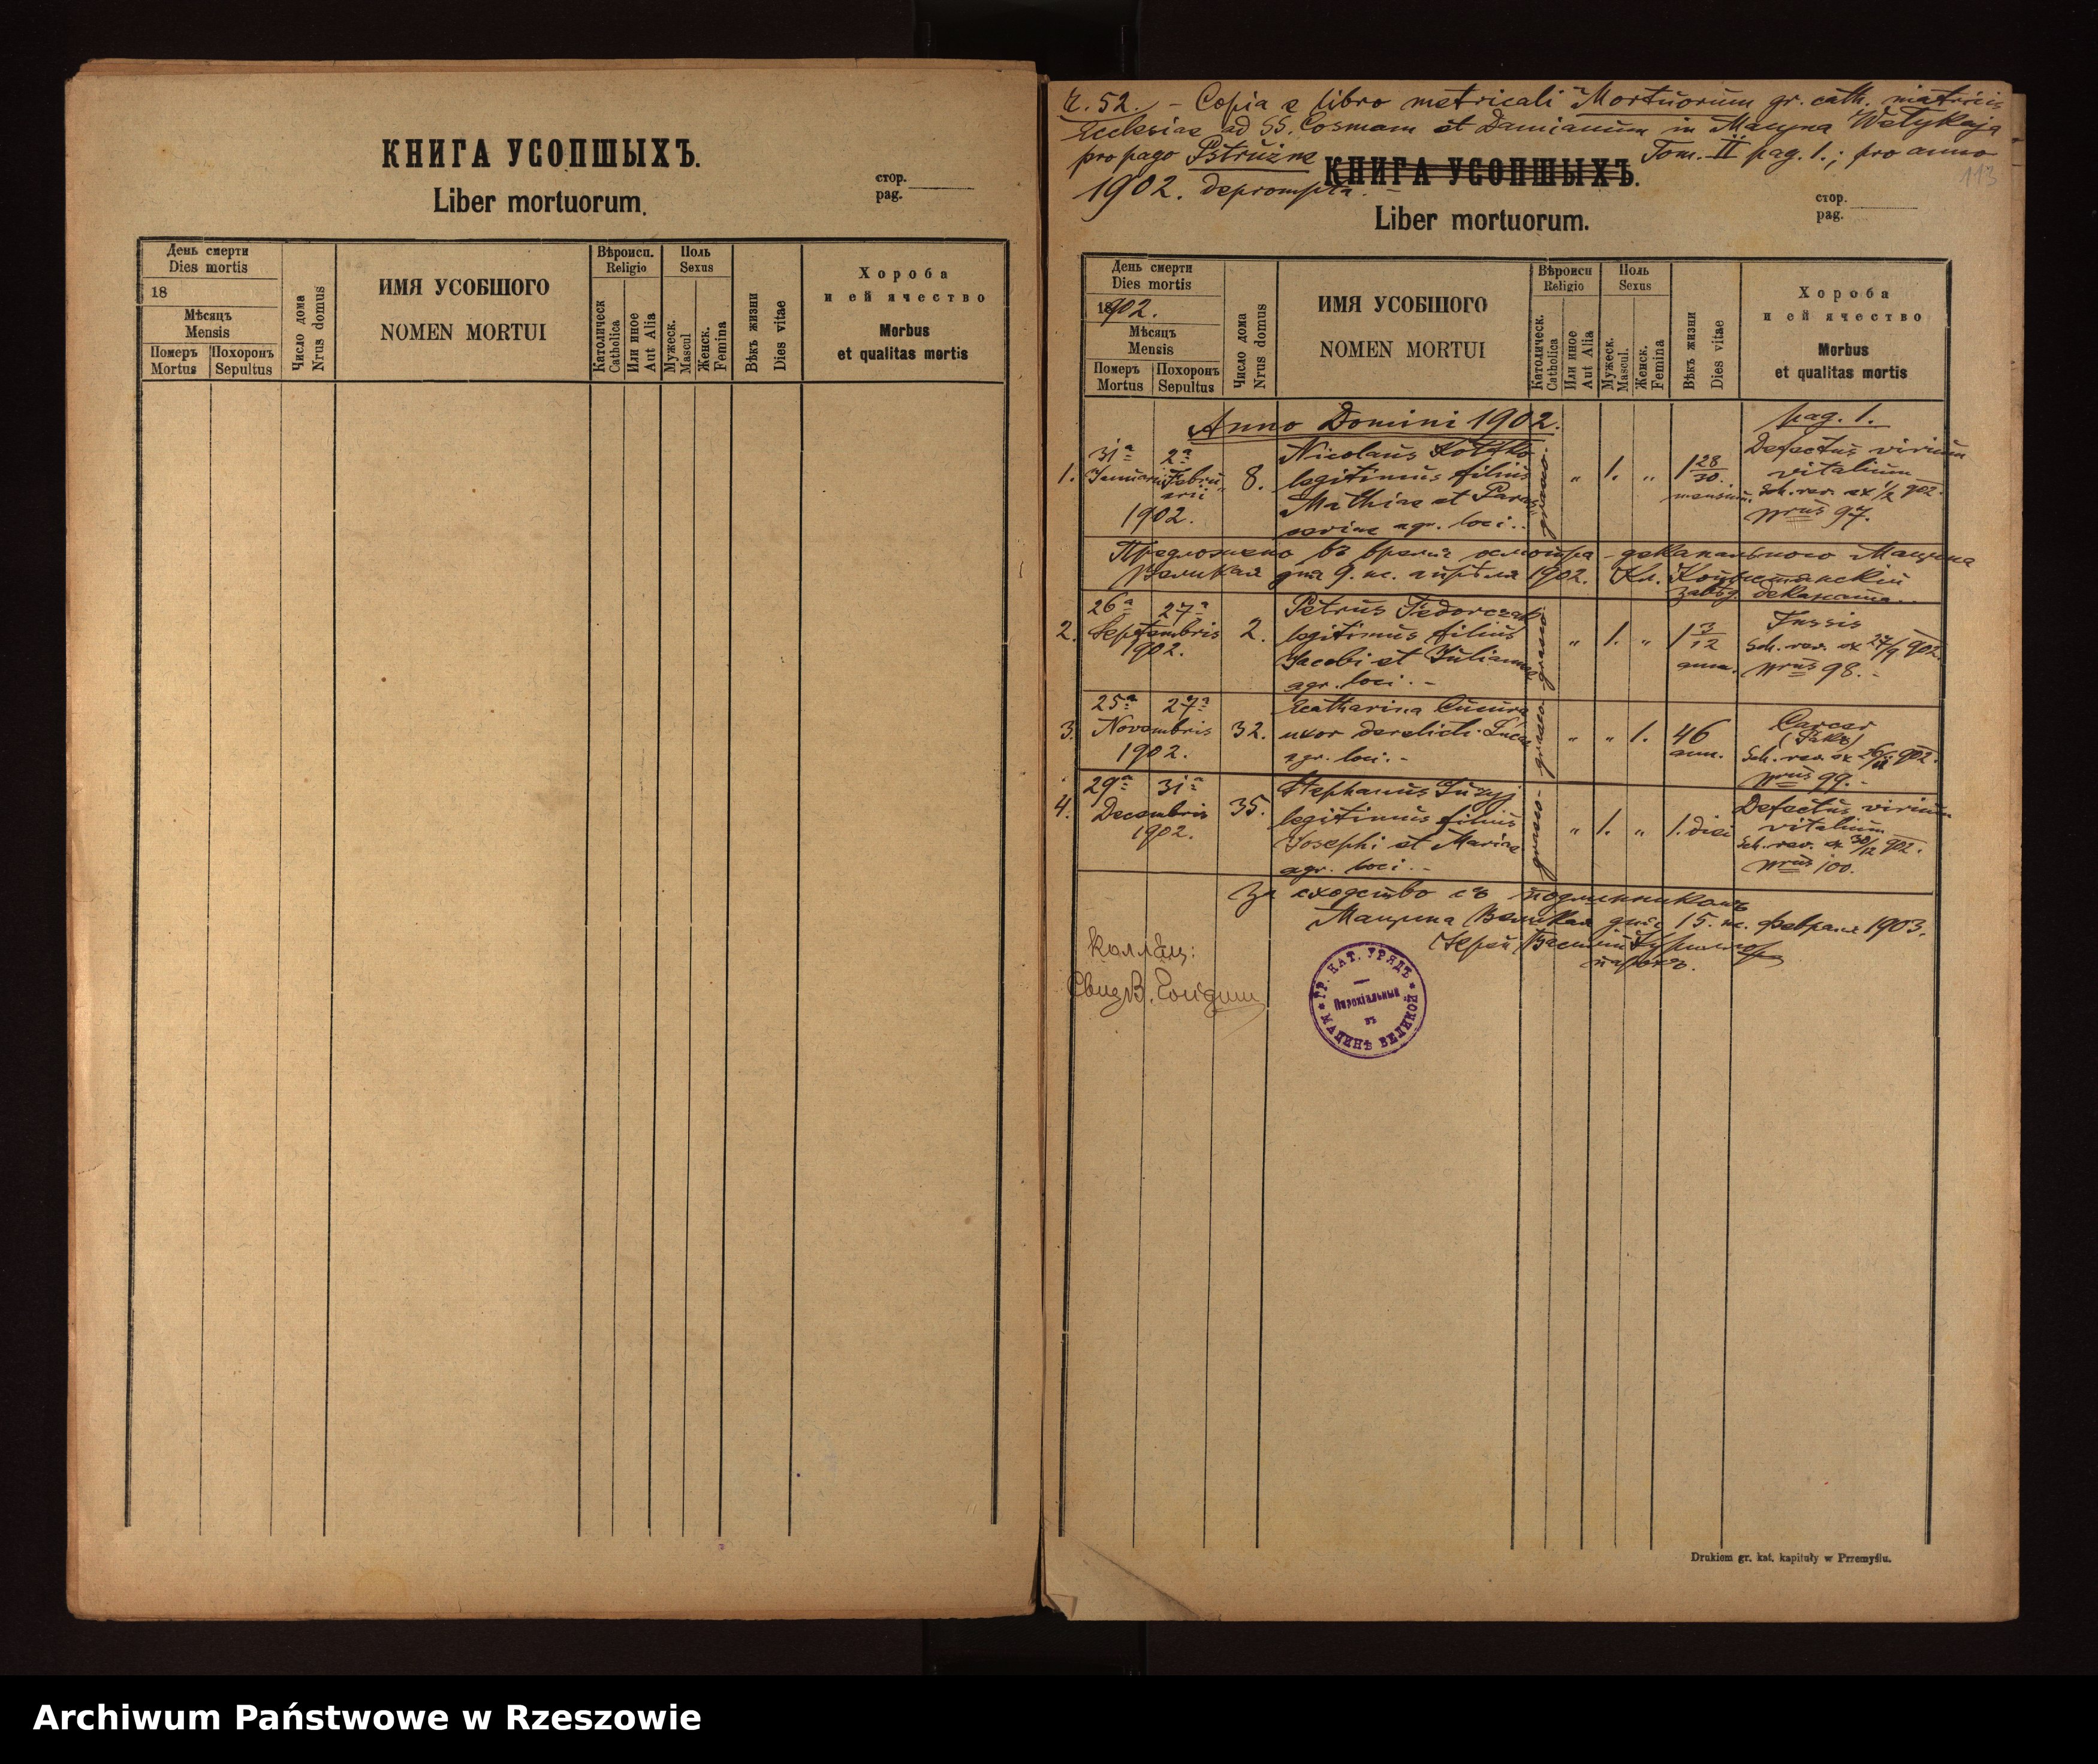 КНИГА УСОПШЫХЪ.
Liber mortuorum.
стор.
pag.
День смерти
Dies mortis
18
Мѣсяцъ
Mensis
Померъ
Mortus
Похоронъ
Sepultus
Число дома
Nrus domus
ИМЯ УСОБШОГО
NOMEN MORTUI
Вѣроисп.
Religio
Католическ
Catholica
Или иное
Aut Alia
Поль
Sexus
Мужеск.
Mascul
Женск.
Femina
Вѣкъ жизни
Dies vitae
Хороба
и ей ячество
Morbus
et qualitas mortis
Ч. 52. – Copia e libro metricali Mortuorum gr. cath. matricis
Ecclesiae ad SS. Cosmam et Damianum in Macyna Wełykaja
pro pago Pstrużne Tom. II pag. 1.; pro anno
1902. deprompta. –
113
КНИГА УСОПШЫХЪ.
Liber mortuorum.
стор.
pag.
День смерти
Dies mortis
1902.
Мѣсяцъ
Mensis
Померъ
Mortus
Похоронъ
Sepultus
Число дома
Nrus domus
ИМЯ УСОБШОГО
NOMEN MORTUI
Вѣроисп
Religio
Католическ.
Catholica
Или иное
Aut Alia
Поль
Sexus
Мужеск.
Mascul.
Женск.
Femina
Вѣкъ жизни
Dies vitae
Хороба
и ей ячество
Morbus
et qualitas mortis
Anno Domini 1902.
pag. 1.
1.
31a Januarii
2a Februarii
1902.
8.
Nicolaus
legitimus filius
Mathiae et Paras
ceviae agr. loci. –
graeco
" 1. "
1 28/30
mensium
Defectus virium
vitalium
Sch. rev. ex 1/2 902.
Nrus 97.
Предложено въ время осмотра деканального Мацина
Великая дня 9. н. апрѣля 1902. Кл.
завѣд. деканата. –
2.
26a 27a
Septembris
1902.
2.
Petrus Fedorczak
legitimus filius
Jacobi et Julianna
agr. loci. –
graeco
" 1. "
1 3/12
ann.
Tussis
Sch. rev. ex 27/9 902.
Nrus 98. –
3.
25a 27a
Novembris
1902.
32.
Catharina Cucura
uxor derelict. Lucae
agr. loci. –
graeco
" " 1.
46
ann.
Cancer
(Rak)
Sch. rev. ex 902.
Nrus 99. –
4.
29a 31a
Decembris
1902.
35.
Stephanus
legitimus filius
Josephi et Mariae
agr. loci. –
graeco
" 1. "
1. diei
Defectus virium
vitalium
Sch. rev. ex 30/12 902.
Nrus 100.
За сходство съ подлинникомъ
Мацина Великая дня 15. н. Февраля 1903.
Іерей Василій
парохъ.
Коллац:
ГР. КАТ. УРЯДЪ
Парохіальный
въ
МАЦИНѢ ВЕЛИКОЙ
Drukiem gr. kat. kapituły w Przemyślu.
Archiwum Państwowe w Rzeszowie